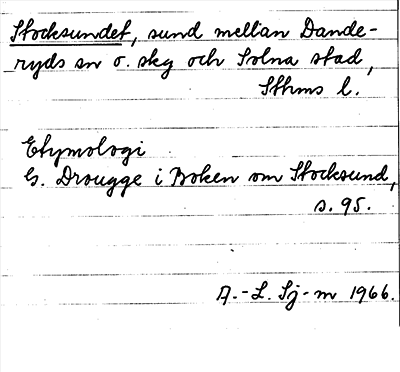 Stocksundet, sund mellan Dande-
ryds sn o. skg och Solna stad,
Sthms l.
Etymologi
G. Drougge i Boken om Stocksund,
s. 95.
A.-L. Sj-m 1966.